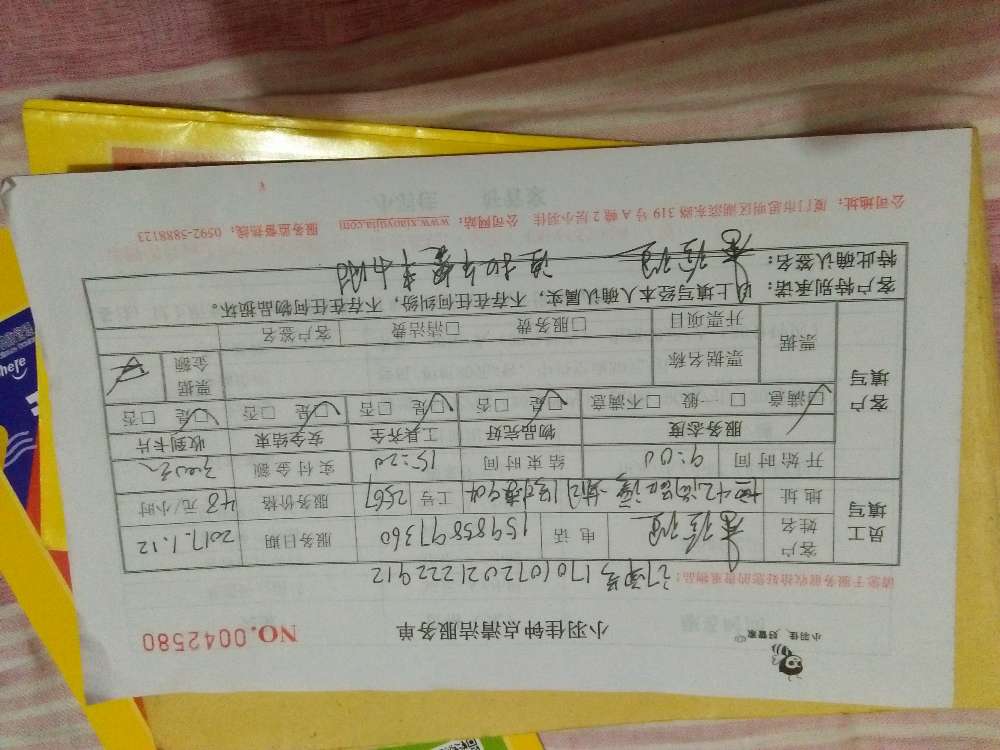 小羽佳 好管家
小羽佳钟点清洁服务单
NO.0042580
请您于服务前收拾好您的贵重物品:
订单号1701072021222912
员工填写
客户姓名
电话 15985897360
服务日期 2017.1.12
地址
工号 2567
服务价格 48元/小时
开始时间 9:00
结束时间 15:20
实付金额 300元
客户填写
服务态度 物品完好 工具齐全 安全结束 收到卡片
□满意 □一般 □不满意 □是 □否 □是 □否 □是 □否 □是 □否
票据
票据名称
票据金额
开票项目 □服务费 □清洁费 客户签名
客户特别承诺: 以上填写经本人确认属实,不存在任何纠纷,不存在任何物品损坏。
特此确认签名:
公司地址: 厦门市思明区湖滨东路319号A幢2层小羽佳 公司网站: www.xiaoyujia.com 服务监督热线: 0592-5888123
here